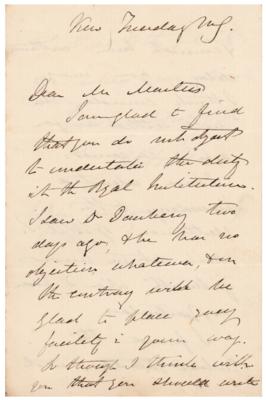 Kew Tuesday Mg.
Dear Mr Masters
I am glad to find
that you do not object
to undertake the duty
at the Royal Institution.
I saw Dr Daubeny two
days ago, & he has no
objection whatever, & on
the contrary will be
glad to place every
facility in your way.
though I think with
you that you should write